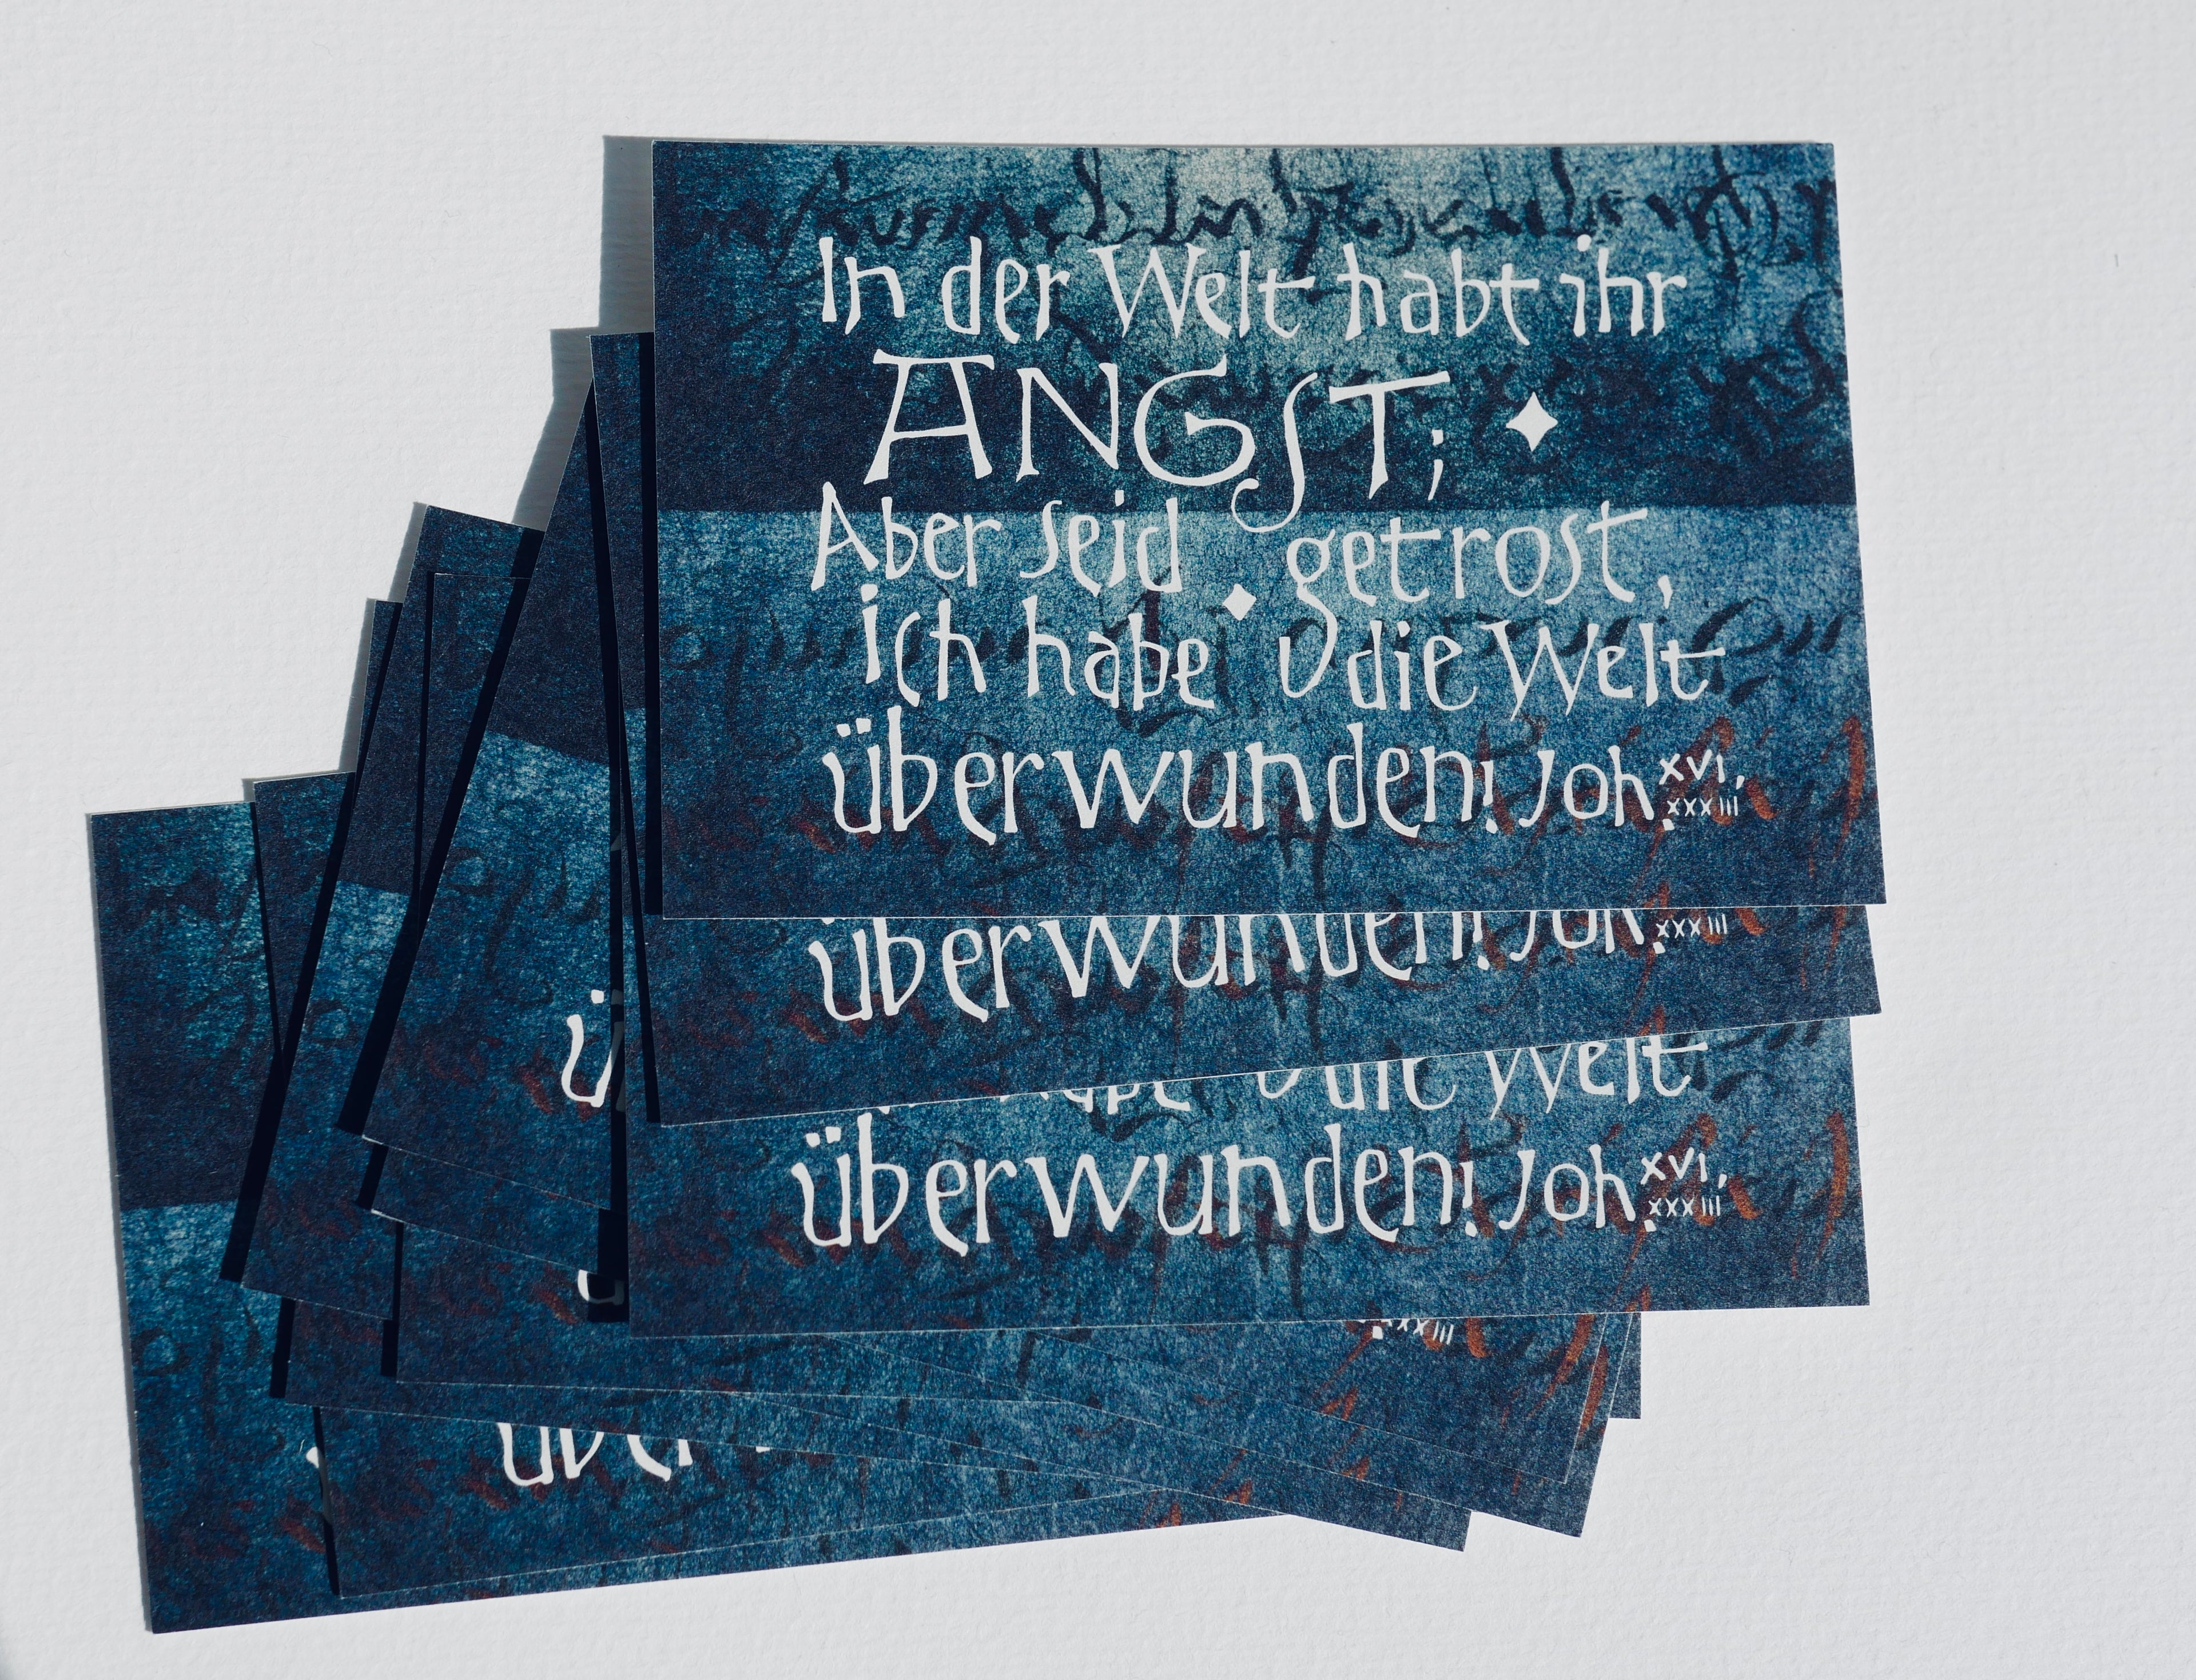 In der Welt habt ihr
ANGST;
Aber seid getrost,
ich habe die Welt
überwunden! Joh. XVI,
XXXIII
überwunden! Joh.
XXXIII
habe die Welt
überwunden! Joh. XVI,
XXXIII
ü
XXXIII
über